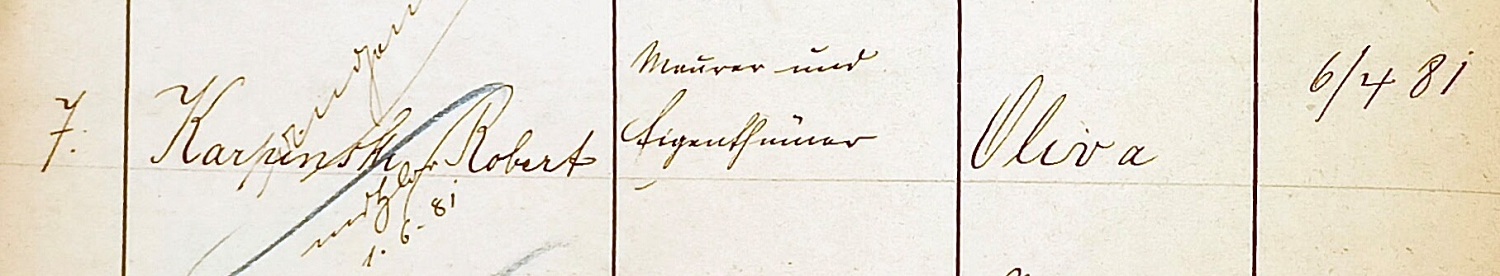 7. Karpinski Robert Maurer und Oliva 6/4 81
Eigenthümer
1. 6. 81